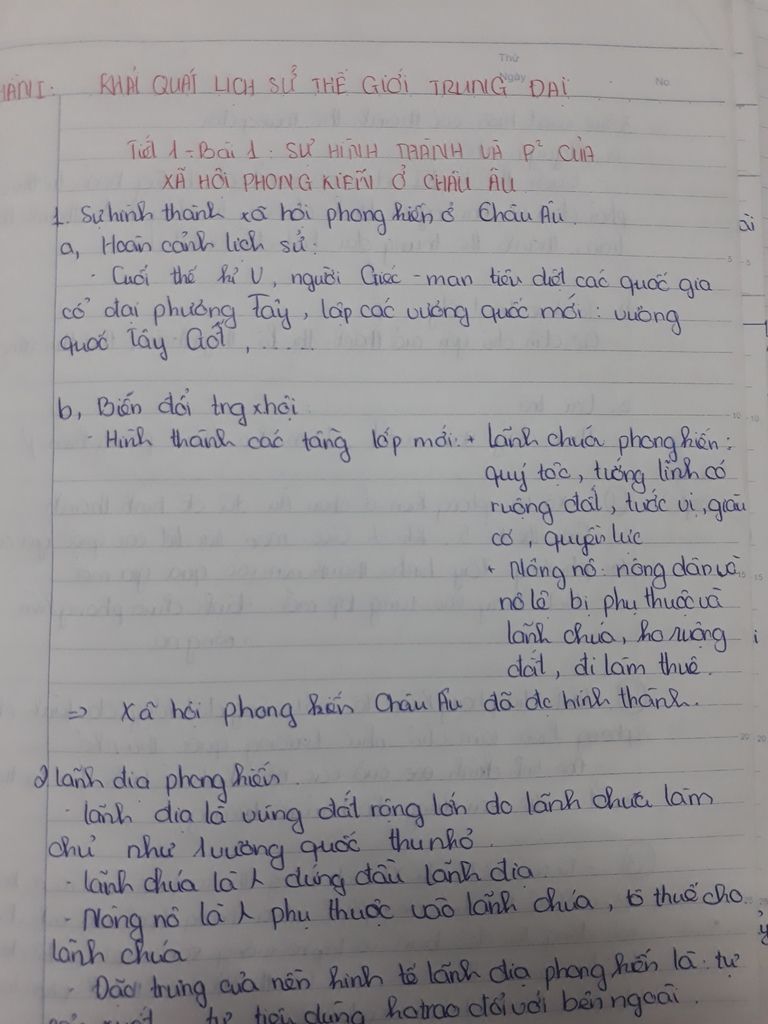 Thứ
Ngày
No
PHẦN I: KHÁI QUÁT LỊCH SỬ THẾ GIỚI TRUNG ĐẠI
Tiết 1 - Bài 1: SỰ HÌNH THÀNH VÀ P² CỦA
XÃ HỘI PHONG KIẾN Ở CHÂU ÂU
1. Sự hình thành xã hội phong kiến ở Châu Âu.
a, Hoàn cảnh lịch sử:
- Cuối thế kỉ V, người Giéc-man tiêu diệt các quốc gia
cổ đại phương Tây, lập các vương quốc mới: vương
quốc Tây Gốt, ......
b, Biến đổi trg xhội
- Hình thành các tầng lớp mới: + lãnh chúa phong kiến:
quý tộc, tướng lĩnh có
ruộng đất, tước vị, giàu
có, quyền lực
+ Nông nô: nông dân và
nô lệ bị phụ thuộc và
lãnh chúa, ko ruộng
đất, đi làm thuê.
=> Xã hội phong kiến Châu Âu đã đc hình thành.
2 lãnh địa phong kiến.
- lãnh địa là vùng đất rộng lớn do lãnh chúa làm
chủ như 1 vương quốc thu nhỏ.
- lãnh chúa là ng đứng đầu lãnh địa
- Nông nô là ng phụ thuộc vào lãnh chúa, tô thuế cho
lãnh chúa
- Đặc trưng của nền kinh tế lãnh địa phong kiến là: tự
tự tiêu dùng ko trao đổi với bên ngoài.